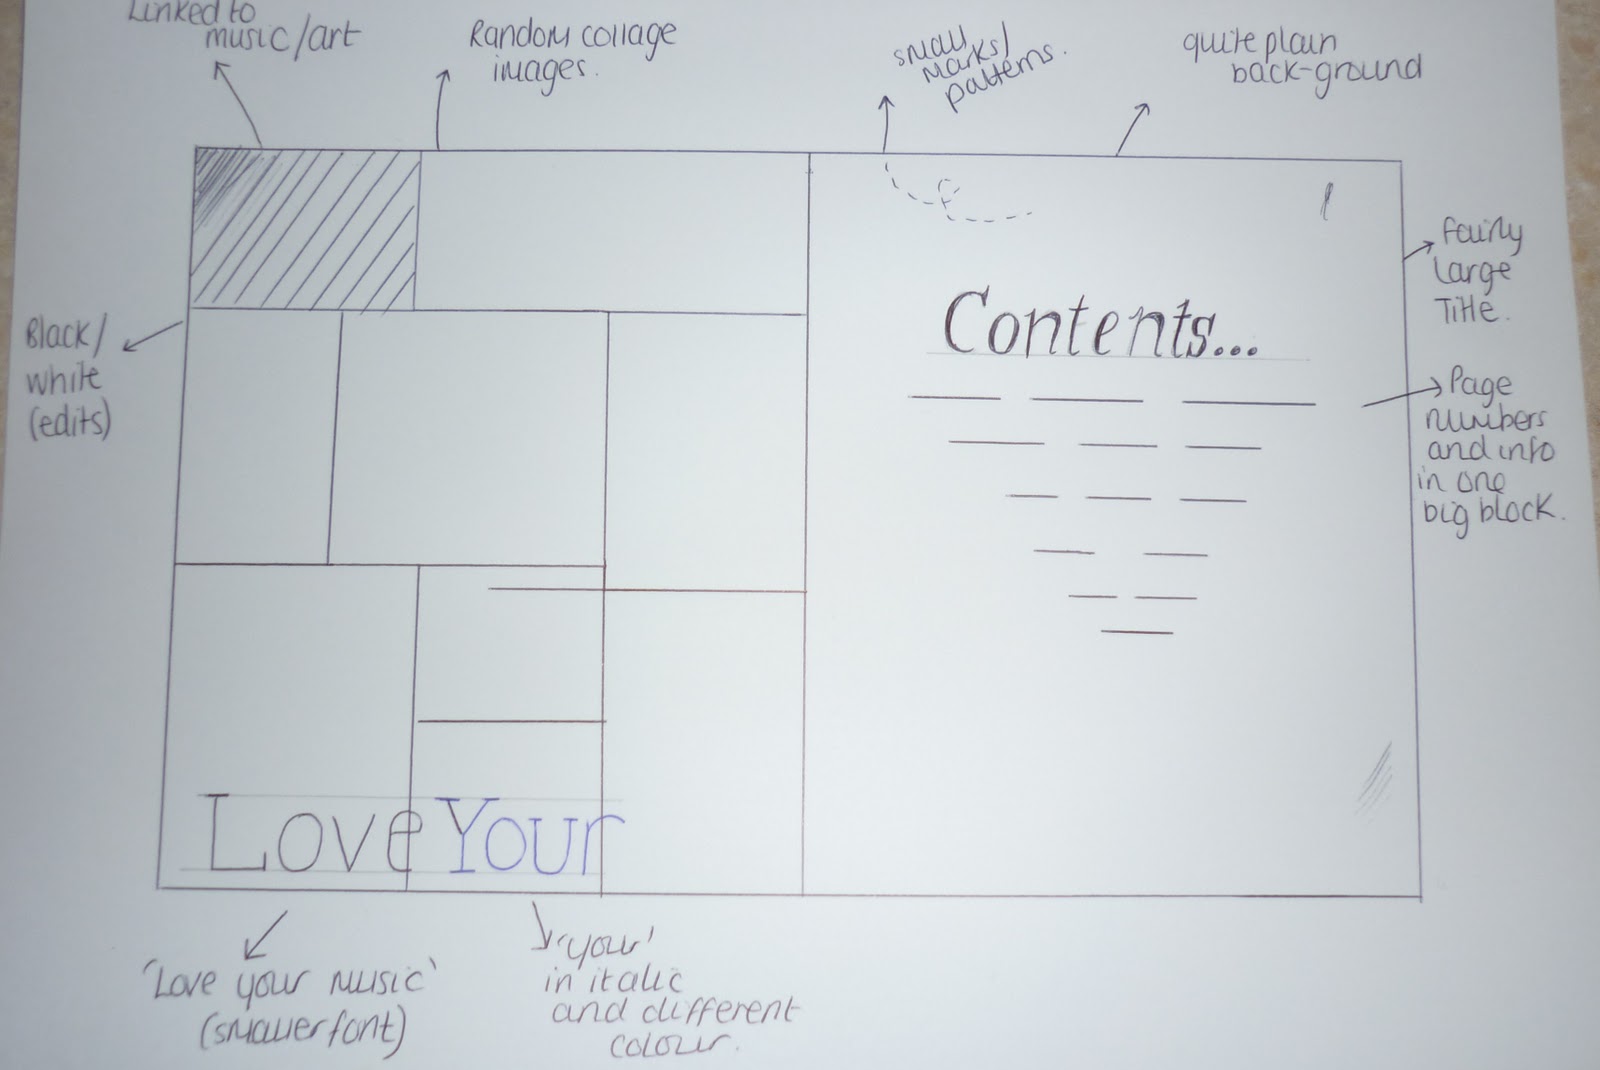 Linked to
music/art
Random collage
images.
small
marks/
patterns.
quite plain
back-ground
Black/
white
(edits)
Contents...
fairly
large
Title.
Page
numbers
and info
in one
big block.
Love Your
'Love your music'
(smaller font)
'your'
in italic
and different
colour.